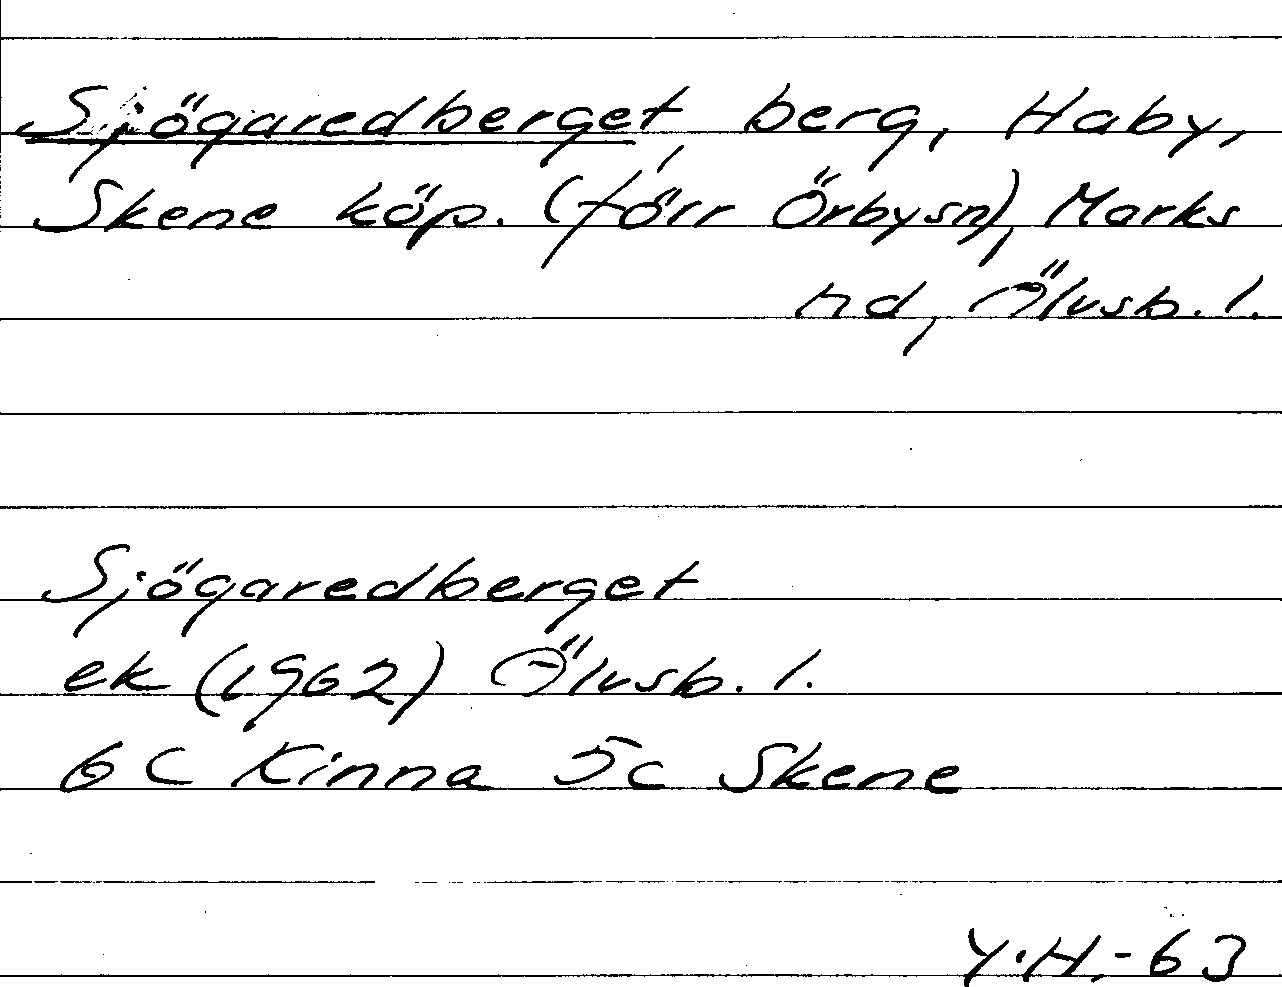 Sjögaredberget, berg, Haby,
Skene köp. (förr Örbysn), Marks
hd, Älvsb. l.
Sjögaredberget
ek (1962) Älvsb. l.
6 C Kinna 5c Skene
Y.H.-63